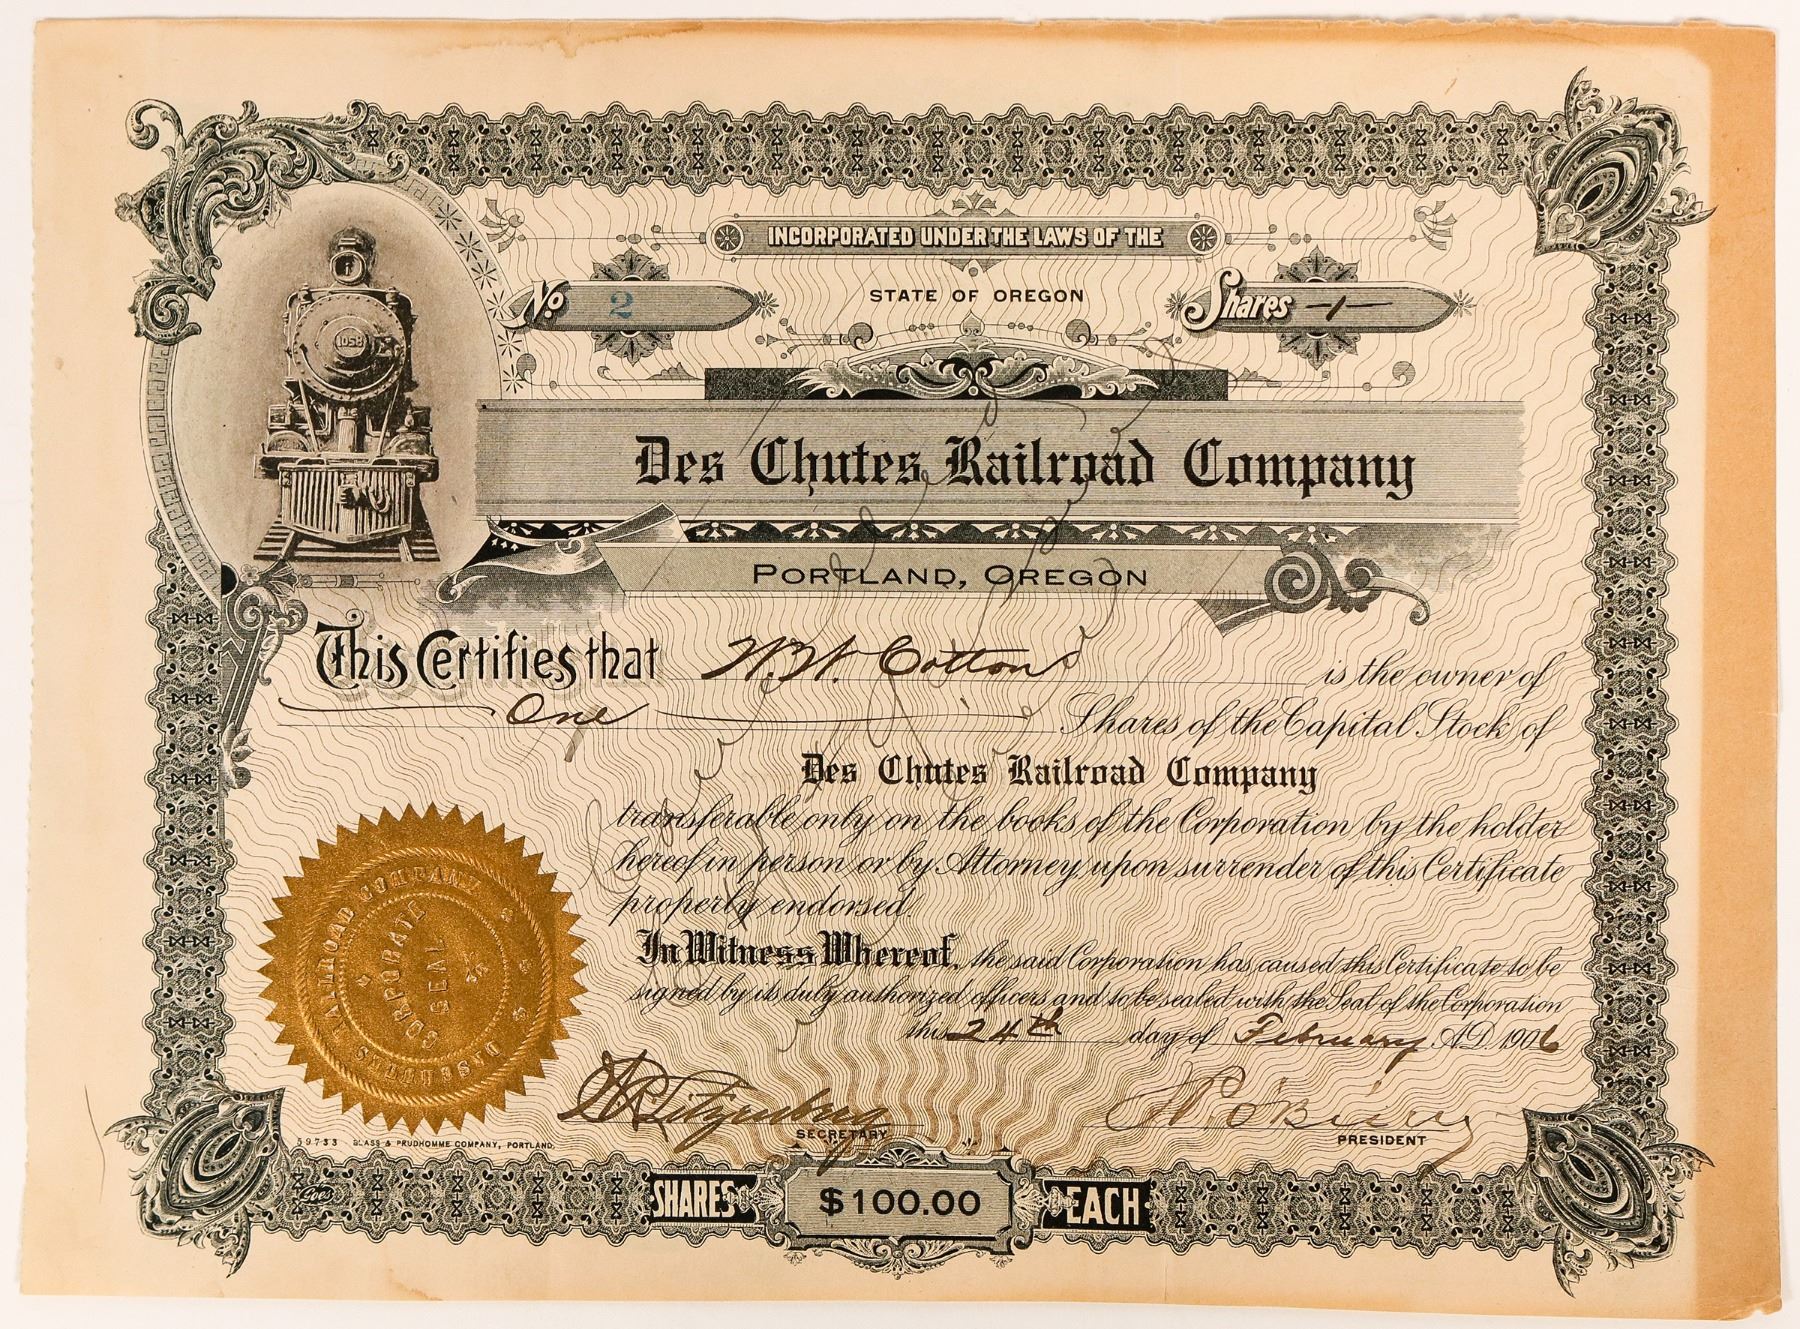 INCORPORATED UNDER THE LAWS OF THE
No. 2
STATE OF OREGON
Shares -1-
1058
Des Chutes Railroad Company
PORTLAND, OREGON
This Certifies that W. W. Cotton is the owner of
One Shares of the Capital Stock of
Des Chutes Railroad Company
transferable only on the books of the Corporation by the holder
hereof in person or by Attorney, upon surrender of this Certificate
properly endorsed.
In Witness Whereof, the said Corporation has caused this Certificate to be
signed by its duly authorized officers and to be sealed with the Seal of the Corporation
this 24th day of February A.D. 1906
RAILROAD COMPANY
CORPORATE
SEAL
DESCHUTES
SECRETARY
PRESIDENT
59733 GLASS & PRUDHOMME COMPANY, PORTLAND.
Goes
SHARES $100.00 EACH